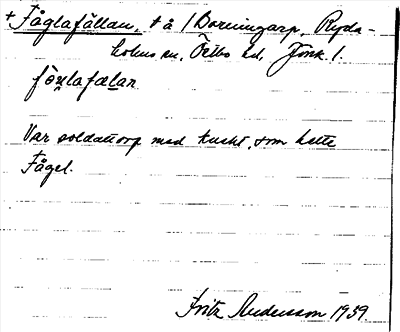 + Fåglafällan, t å / Borringarp, Ryda-
holms sn, Östbo hd, Jönk. l.
fö̱χlafælan
Var soldattorp med knekt, som hette
Fågel.
Fritz Andersson 1939.